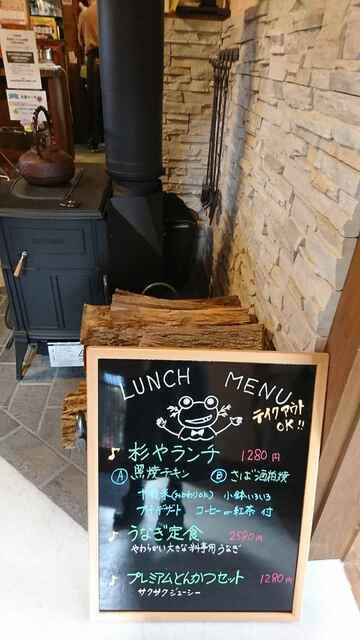 LUNCH MENU
テイクアウト
OK!!
♪ 杉やランチ 1280円
Ⓐ 黒焼チキン Ⓑ さば酒粕焼
十穀米(おかわりOK) 小鉢いろいろ
プチデザート コーヒー or 紅茶 付
♪ うなぎ定食 2580円
やわらかい大きな料亭用うなぎ
♪ プレミアムとんかつセット 1280円
サクサクジューシー